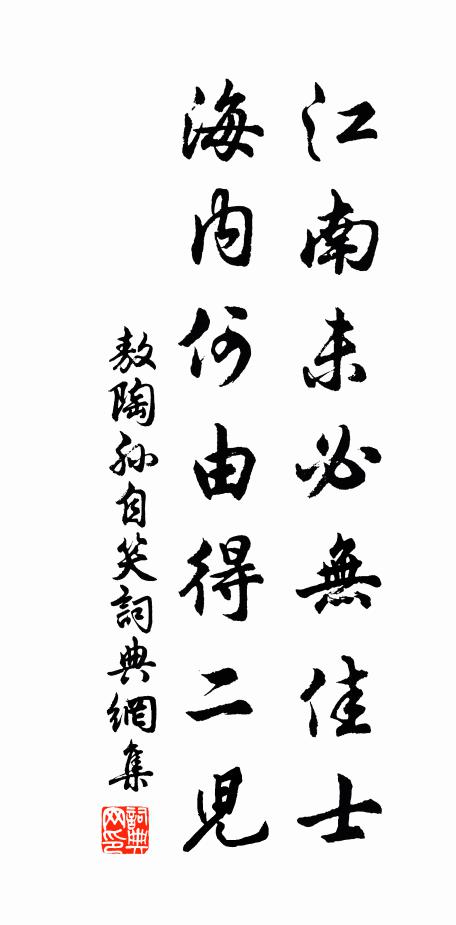 江南未必無佳士
海内何由得二児
敖陶孙自笑詞典網集
詞典网印